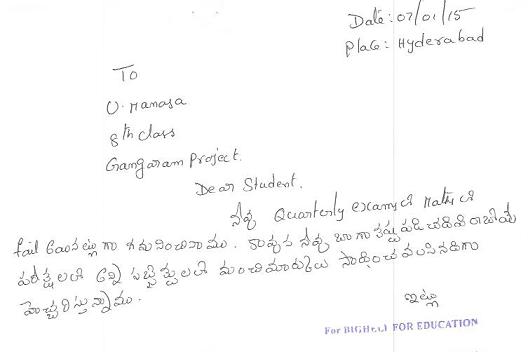 Date: 07/01/15
Place: Hyderabad
To
U. Manasa
8th class
Gangaram Project.
Dear Student.
నీవు Quarterly examsలో Mathsలో
fail అయినట్లుగా గమనించినాము. కావున నీవు బాగా కష్టపడి చదివి రాబోయే
పరీక్షలలో అన్ని సబ్జెక్టులలో మంచిమార్కులు సాధించవలసినదిగా
హెచ్చరిస్తున్నాము.
ఇట్లు
For BIGHELP FOR EDUCATION